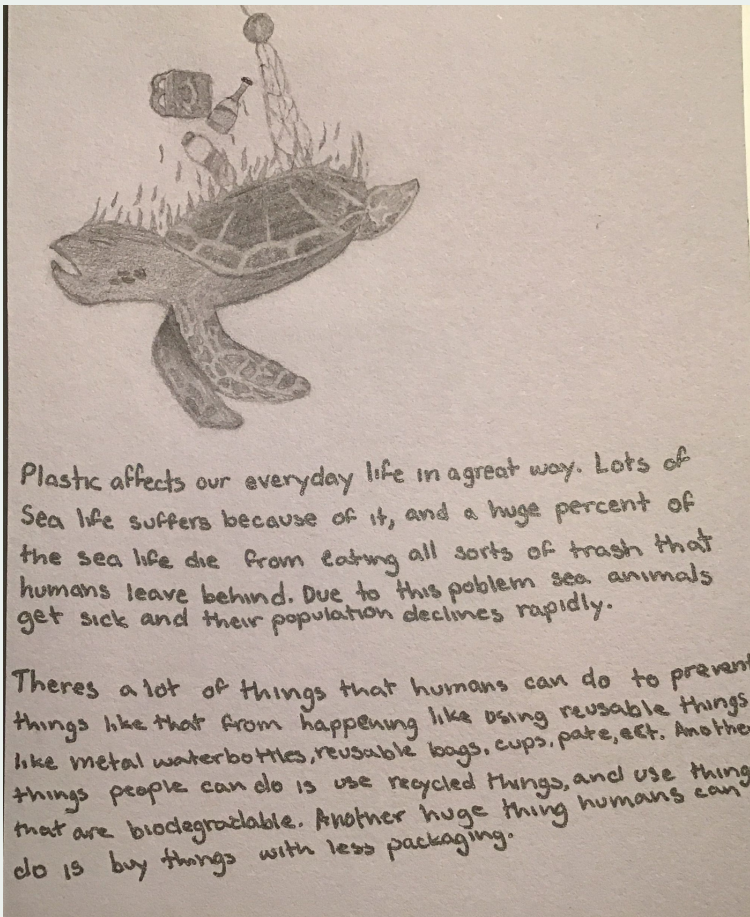 Plastic affects our everyday life in a great way. Lots of
Sea life suffers because of it, and a huge percent of
the sea life die from eating all sorts of trash that
humans leave behind. Due to this poblem sea animals
get sick and their population declines rapidly.
Theres a lot of things that humans can do to prevent
things like that from happening like using reusable things
like metal waterbottles, reusable bags, cups, pate, ect. Another
things people can do is use recycled things, and use thing
that are biodegradable. Another huge thing humans can
do is buy things with less packaging.